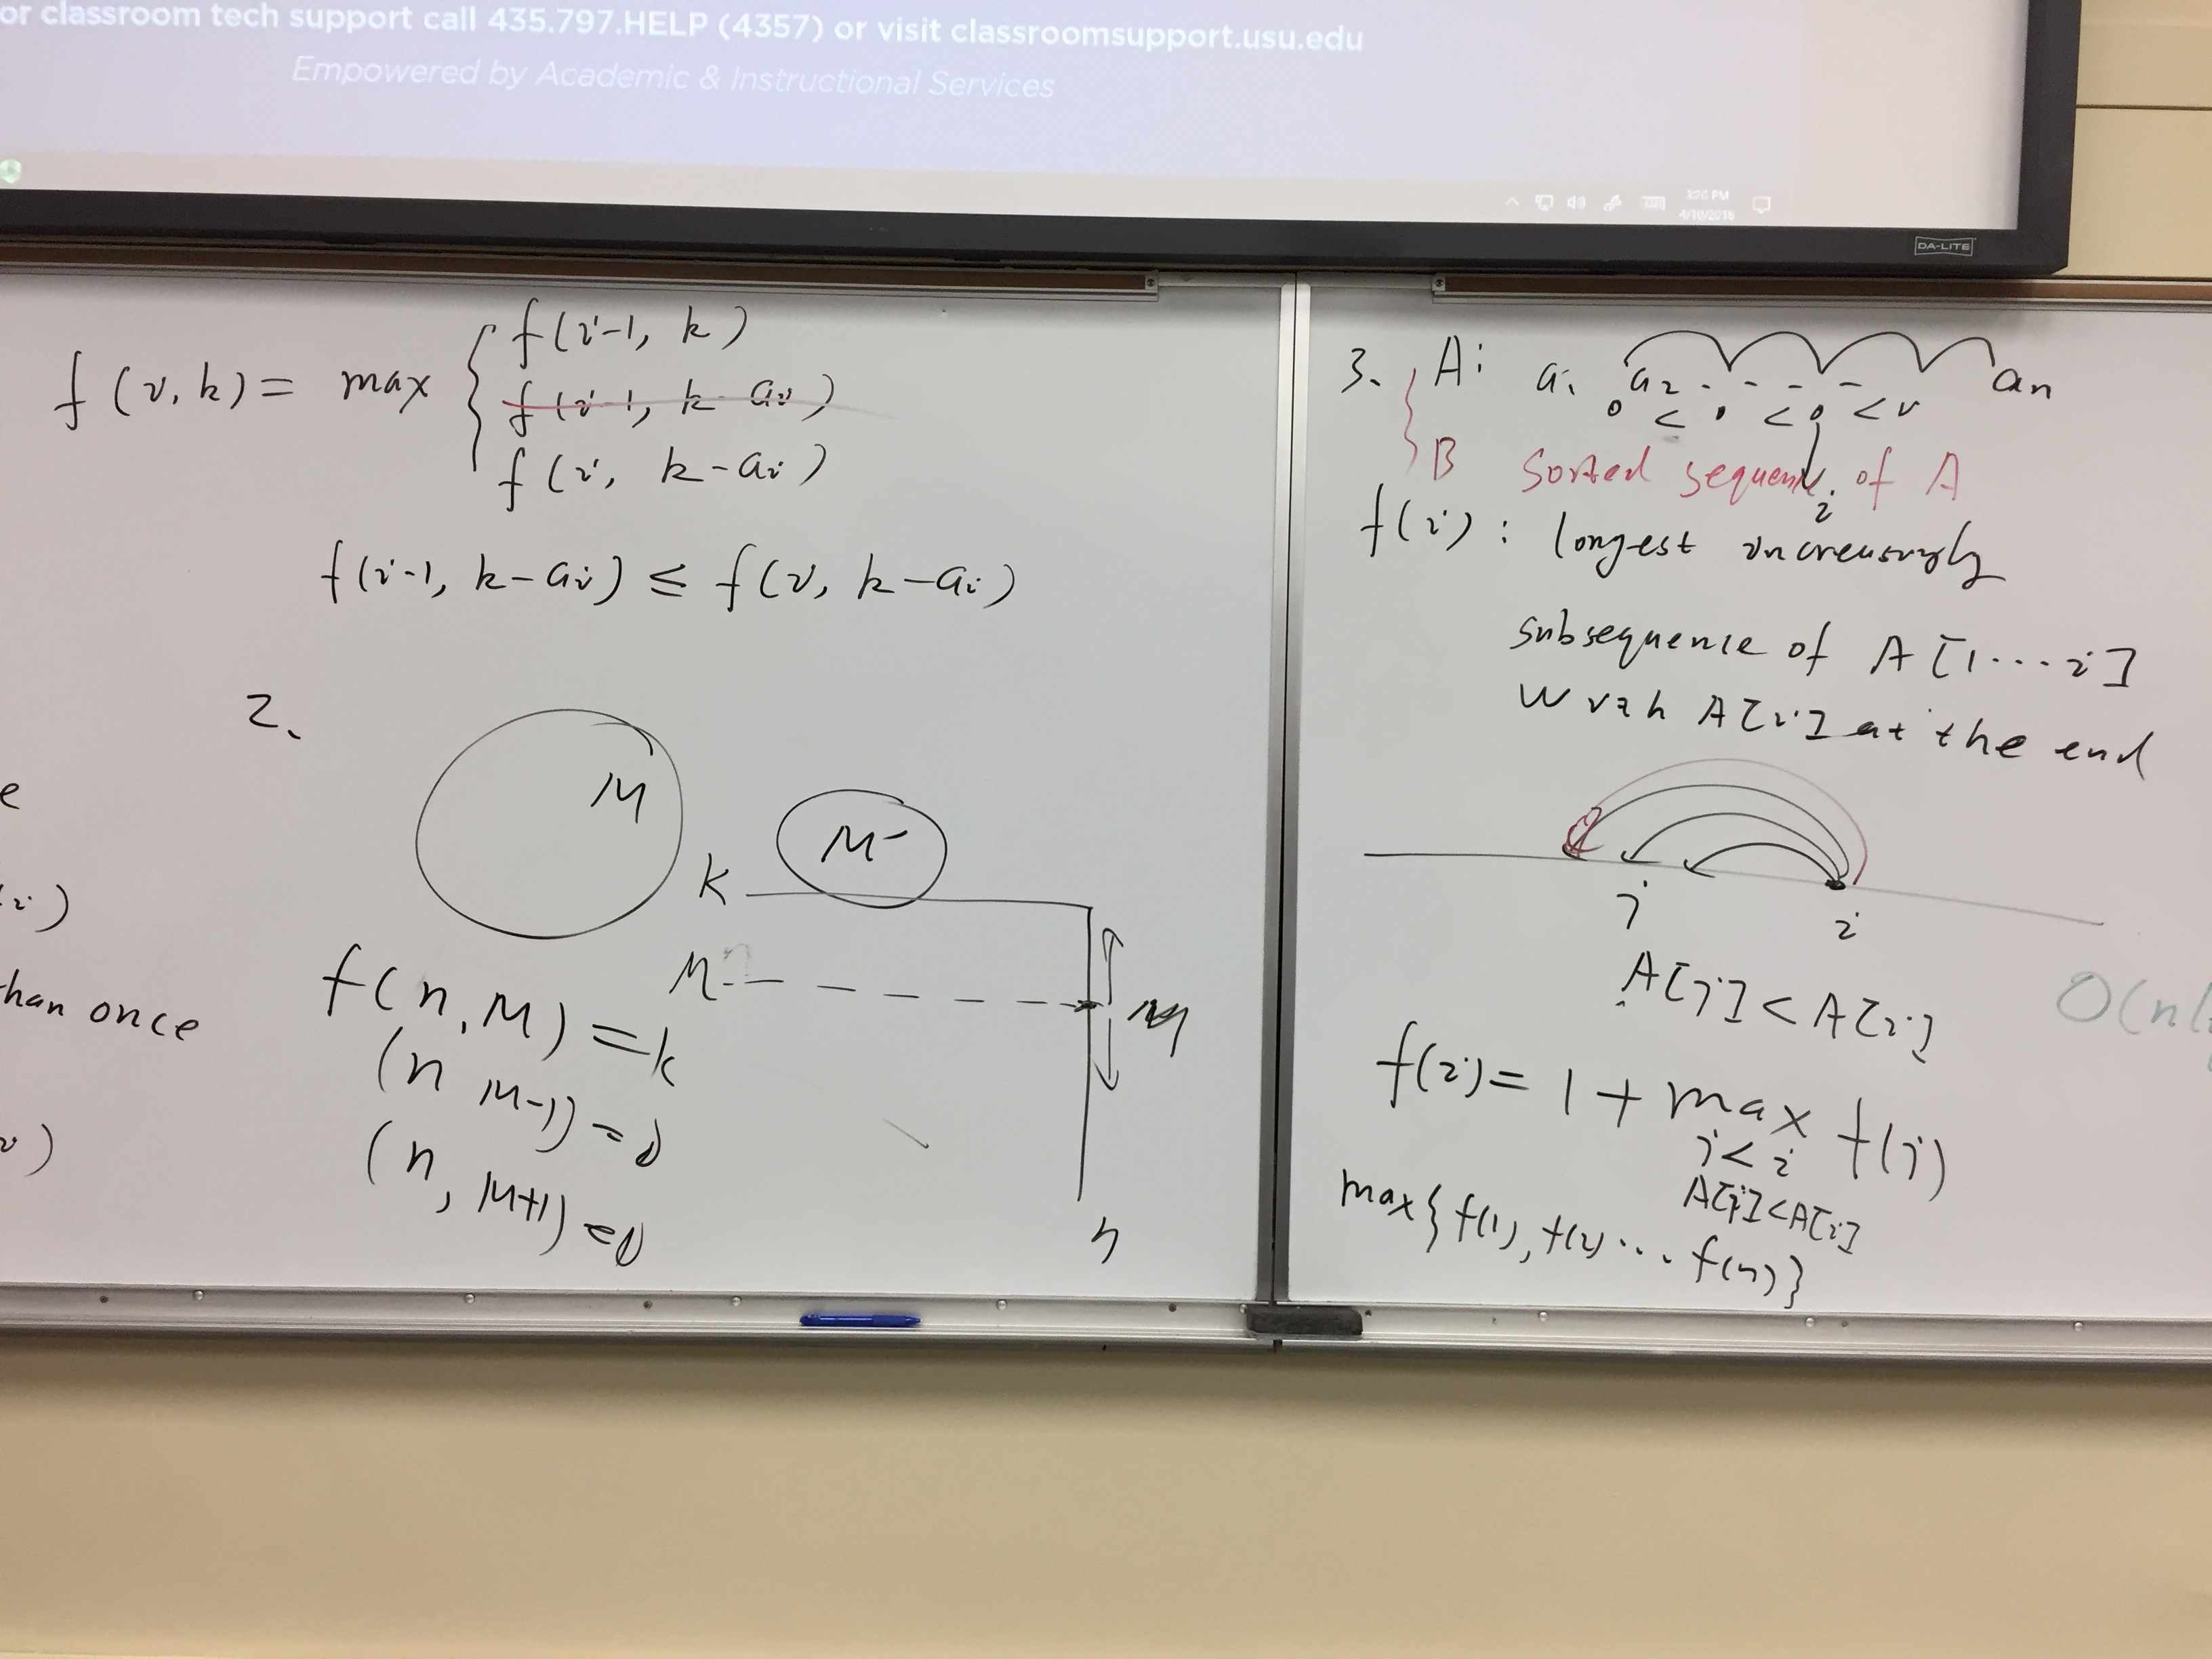 or classroom tech support call 435.797.HELP (4357) or visit classroomsupport.usu.edu
Empowered by Academic & Instructional Services
4/10/2018
DA-LITE
f(i, k) = max { f(i-1, k)
f(i-1, k-ai)
f(i, k-ai)
f(i-1, k-ai) ≤ f(i, k-ai)
2.
M
M'
k
M
M
n
f(n, M) = k
(n M-1) = 0
(n, M+1) = 0
e
i)
than once
i)
3. A: a1 a2 - - - - an
< < <
B Sorted sequence of A
i
f(i): longest increasingly
subsequence of A[1...i]
with A[i] at the end
j i
A[j] < A[i]
O(n
f(i) = 1 + max f(j)
j < i
A[j]<A[i]
max{f(1), f(2) ... f(n)}